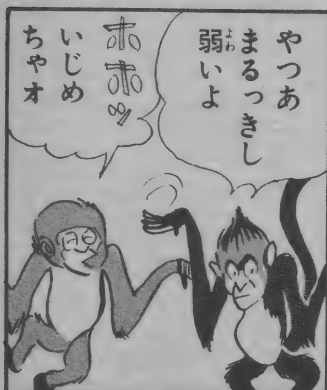 やつあ
まるっきし
弱いよ
よわ
ホホッ
いじめ
ちゃオ